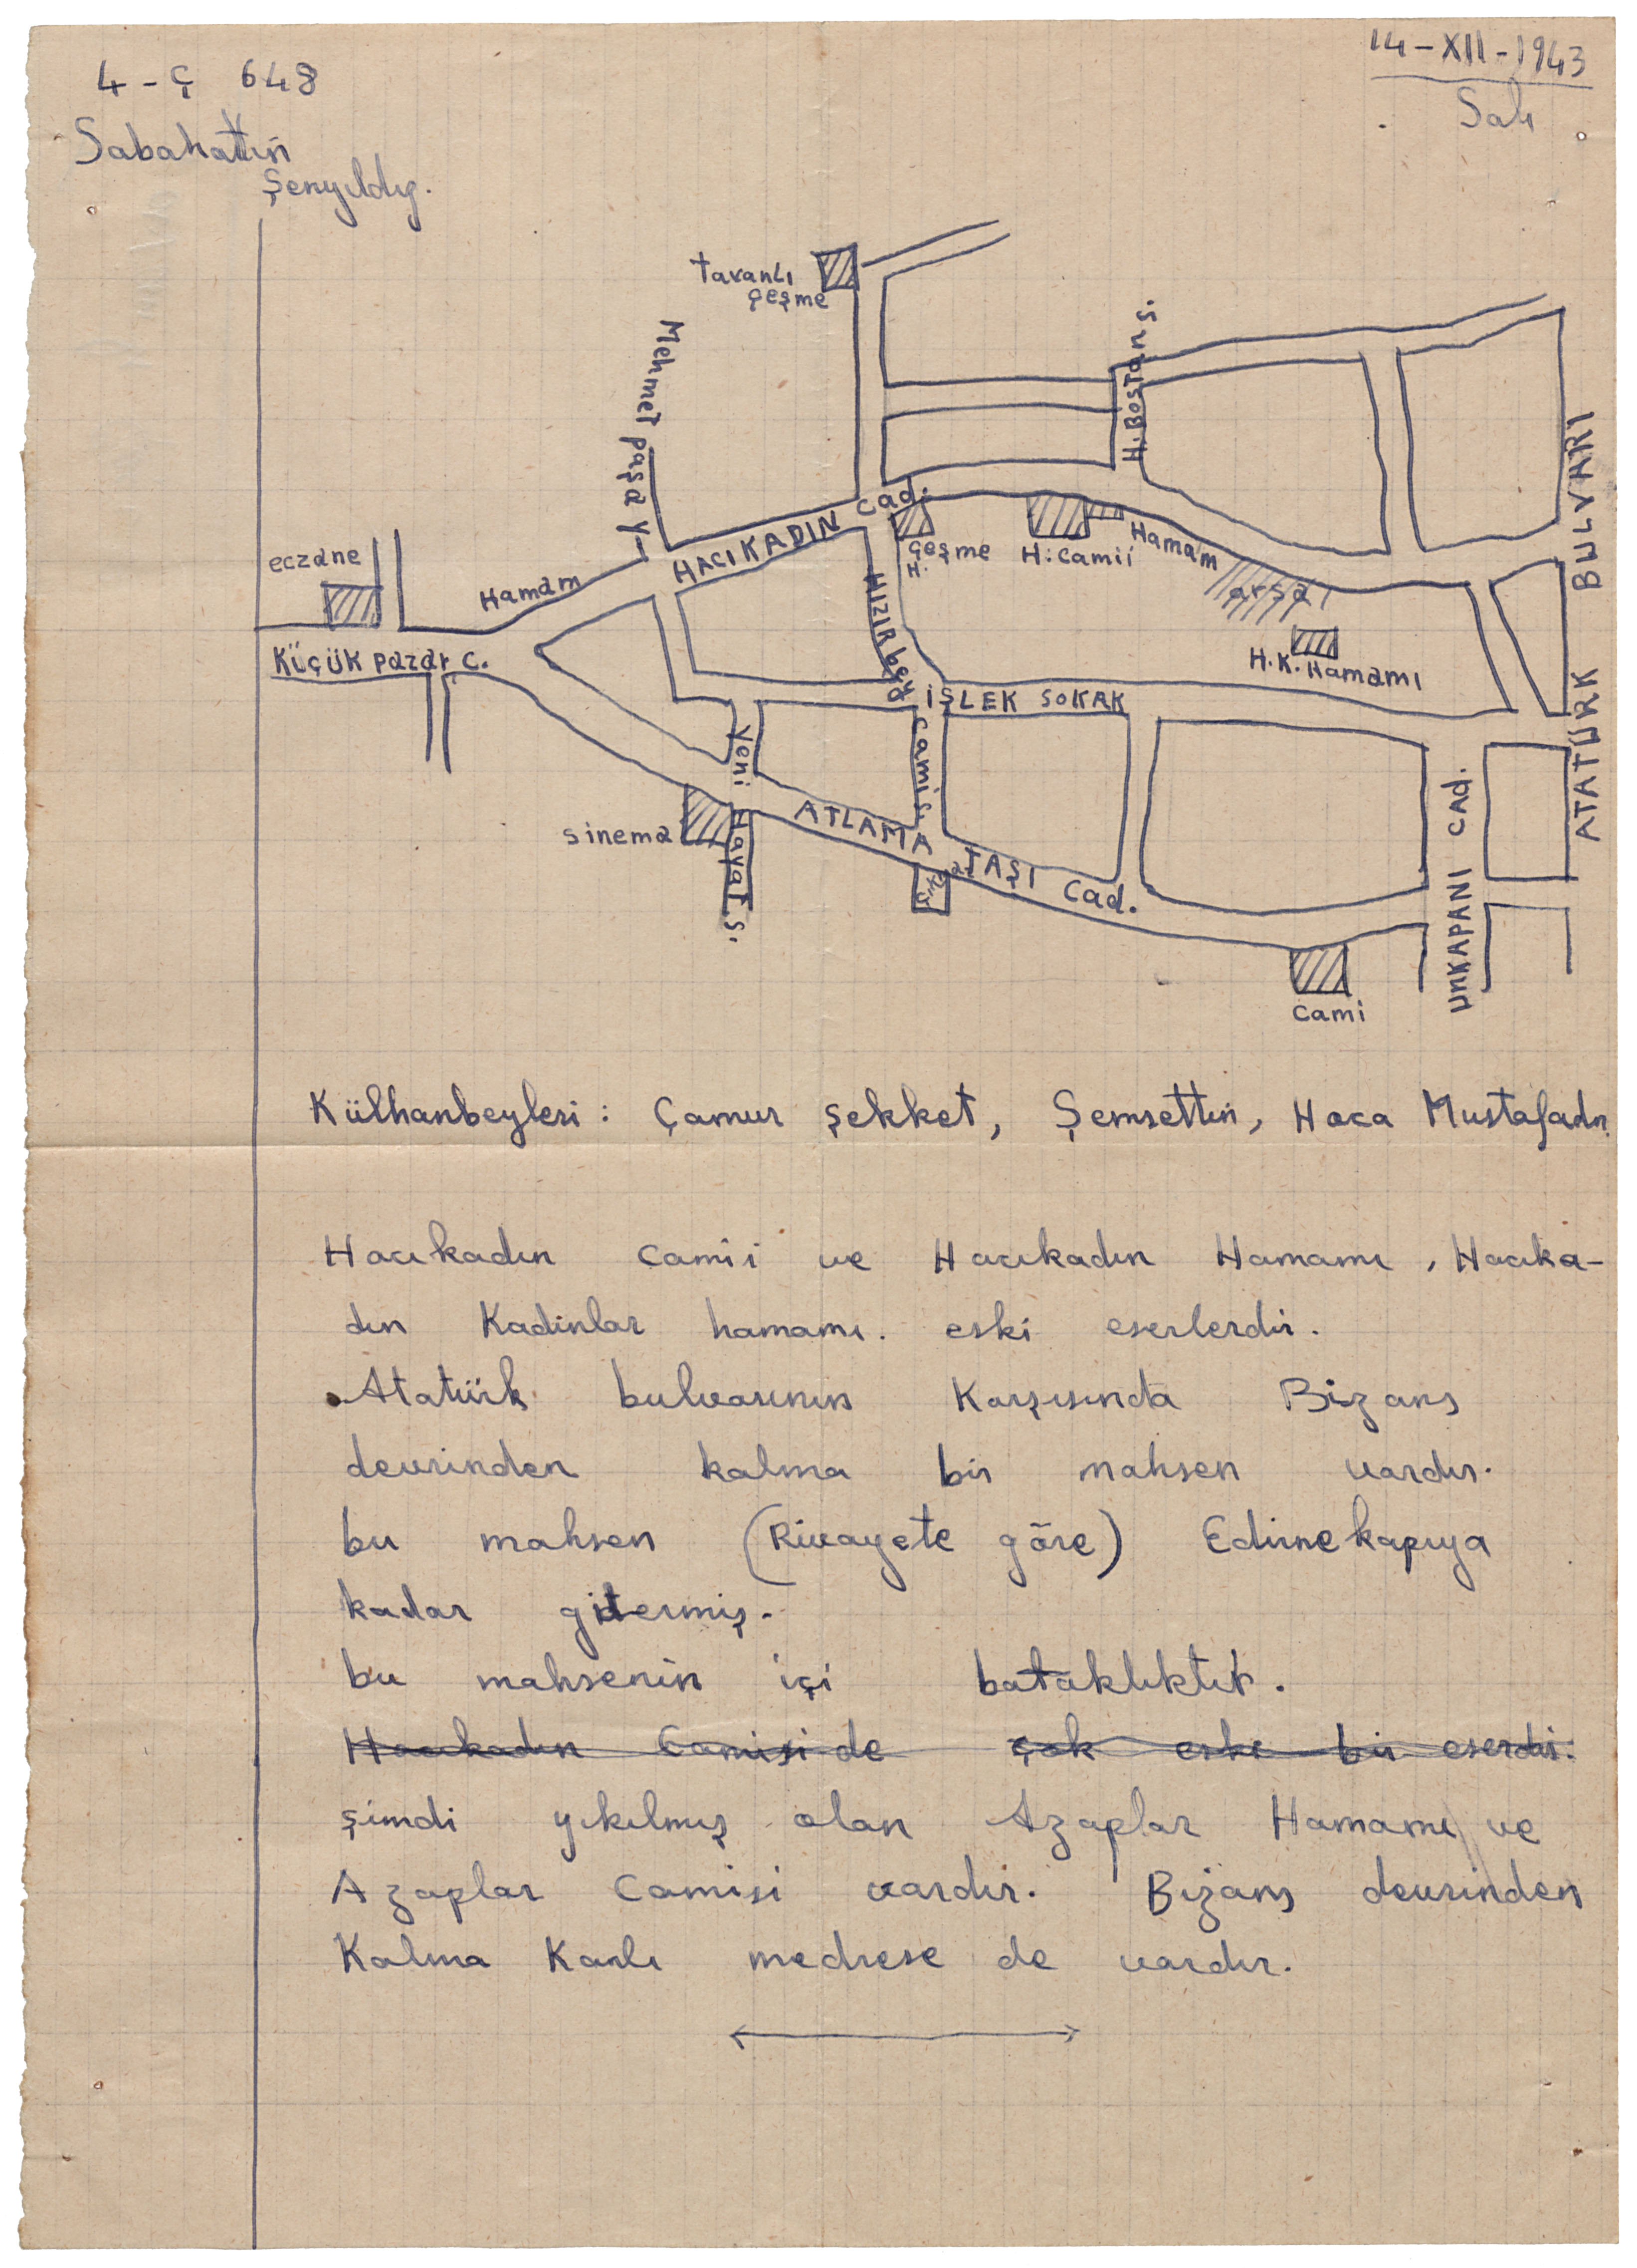 4 - Ç 648
14-XII-1943
Salı
Sabahattin
Şenyıldız.
tavanlı
çeşme
Mehmet paşa Y.
H. BOSTAN S.
ATATÜRK BULVARI
eczane
Hamam
HACIKADIN Cad.
çeşme
H.
H. Camii
Hamam
arsa
KÜÇÜK pazar C.
HIZIR bey Cami S.
H.K. Hamamı
İŞLEK SOKAK
Yeni Hayat S.
sinema
ATLAMA TAŞI Cad.
UNKAPANI CAd.
Cami
Külhanbeyleri : Çamur Şekket, Şemsettin, Hoca Mustafadır.
Hacıkadın Camii ve Hacıkadın Hamamı, Hacıka-
dın Kadinlar hamamı. eski eserlerdir.
Atatürk bulvarının Karşısında Bizans
devrinden kalma bir mahsen vardır.
bu mahsen (Rivayete göre) Edirnekapıya
kadar gidermiş.
bu mahsenin içi bataklıktır.
Hacıkadın Camisi de çok eski bir eserdir.
şimdi yıkılmış olan Azaplar Hamamı ve
Azaplar Camisi vardır. Bizans devrinden
Kalma Kanlı medrese de vardır.